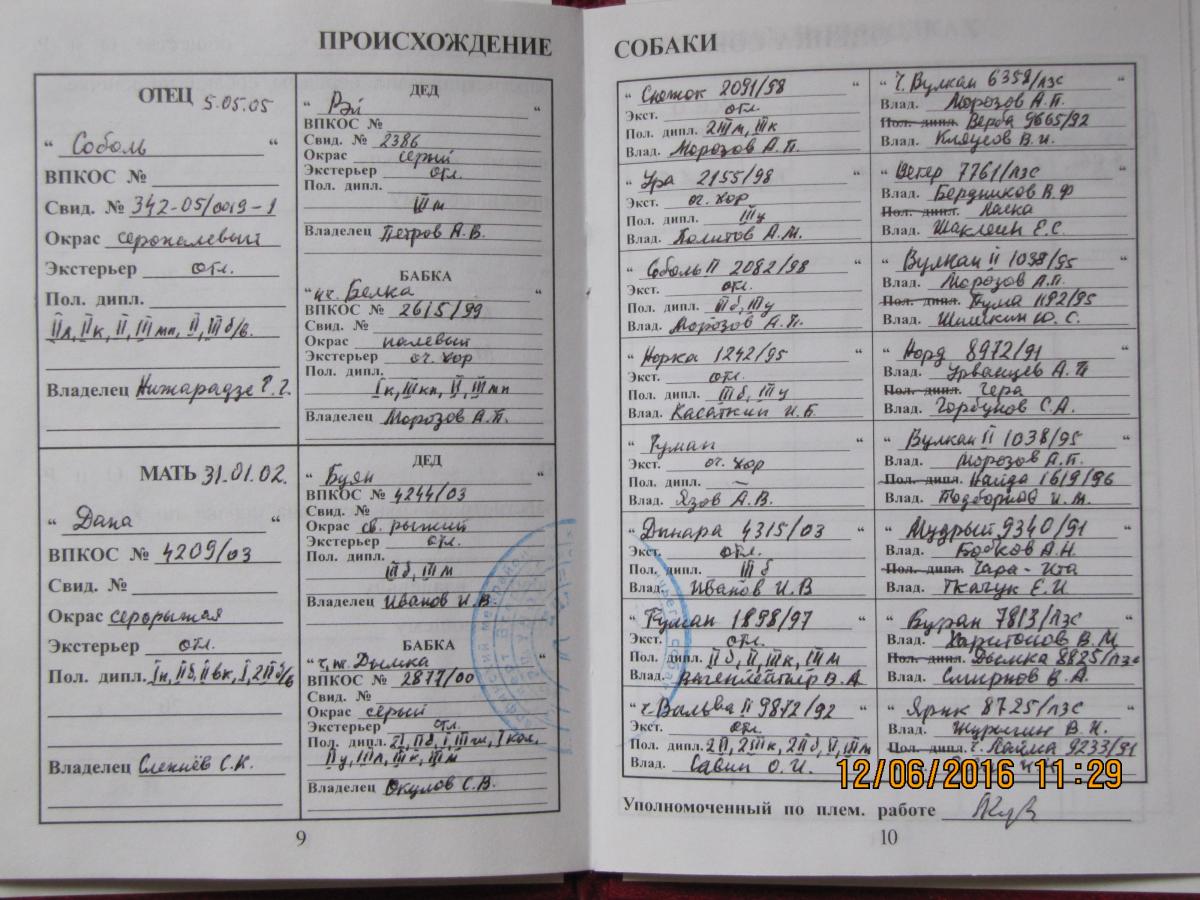 ПРОИСХОЖДЕНИЕ
ОТЕЦ 5.05.05
“ Соболь “
ВПКОС №
Свид. № 342-05/0019-1
Окрас серопалевый
Экстерьер отл.
Пол. дипл.
IIл, IIк, II, III мп, II, III б/в.
Владелец Нижарадзе Г.Г.
ДЕД
“ Рэй “
ВПКОС №
Свид. № 2386
Окрас серый
Экстерьер отл.
Пол. дипл.
III м
Владелец Петров А.В.
БАБКА
“ пч. Белка “
ВПКОС № 2615/99
Свид. №
Окрас палевый
Экстерьер оч. хор
Пол. дипл.
I к, III кп, II, III мп
Владелец Морозов А.П.
МАТЬ 31.01.02.
“ Дана “
ВПКОС № 4209/03
Свид. №
Окрас серорыжая
Экстерьер отл.
Пол. дипл.
Владелец Слепнёв С.К.
ДЕД
“ Буян “
ВПКОС № 4244/03
Свид. №
Окрас св. рыжий
Экстерьер отл.
Пол. дипл.
III б, III м
Владелец Иванов И.В.
БАБКА
“ ч, т. Дымка “
ВПКОС № 2877/00
Свид. №
Окрас серый
Экстерьер отл.
Пол. дипл.
II у, III л, III к, III м
Владелец Окулов С.В.
9
СОБАКИ
“ Снежок 2091/98 “
Экст. отл.
Пол. дипл. 2III м, III к
Влад. Морозов А.П.
“ Ура 2155/98 “
Экст. оч. хор
Пол. дипл. III у
Влад. Политов А.М.
“ Соболь II 2082/98 “
Экст. отл.
Пол. дипл. III б, III у
Влад. Морозов А.П.
“ Норка 1242/95 “
Экст. отл.
Пол. дипл. III б, III у
Влад. Касаткин И.Б.
“ Туман “
Экст. оч. хор
Пол. дипл. –
Влад. Язов А.В.
“ Динара 4315/03 “
Экст. отл.
Пол. дипл. III б
Влад. Иванов И.В
“ Туман 1898/97 “
Экст. отл.
Пол. дипл. II б, II, III к, III м
Влад. Вагенлейтнер В.А
“ ч. Вальва II 9872/92 “
Экст. отл.
Пол. дипл. 2II, 2III к, 2II б, II, III м
Влад. Савин О.И.
“ ч. Вулкан 6358/лзс “
Влад. Морозов А.П.
Пол. дипл. Верба 9665/92
Влад. Кляусов В.И.
“ Ветер 7761/лзс “
Влад. Бердников В.Ф
Пол. дипл. Лайка
Влад. Шаклеин Е.С.
“ Вулкан II 1038/95 “
Влад. Морозов А.П.
Пол. дипл. Пума 1192/95
Влад. Шишкин Ю.С.
“ Норд 8972/91 “
Влад. Урванцев А.П
Пол. дипл. Гера
Влад. Горбунов С.А.
“ Вулкан II 1038/95 “
Влад. Морозов А.П.
Пол. дипл. Найда 1619/96
Влад. Подборнов И.М.
“ Мудрый 9340/91 “
Влад. Бобков А.Н.
Пол. дипл. Чара - Ита
Влад. Ткачук Е.И
“ Буран 7813/лзс “
Влад. Харитонов В.М
Пол. дипл. Дымка 8825/лзс
Влад. Смирнов В.А.
“ Ярык 8725/лзс “
Влад. Журигин В.Н.
Пол. дипл. ч. Лайма 9233/91
Влад.
12/06/2016 11:29
Уполномоченный по плем. работе
10